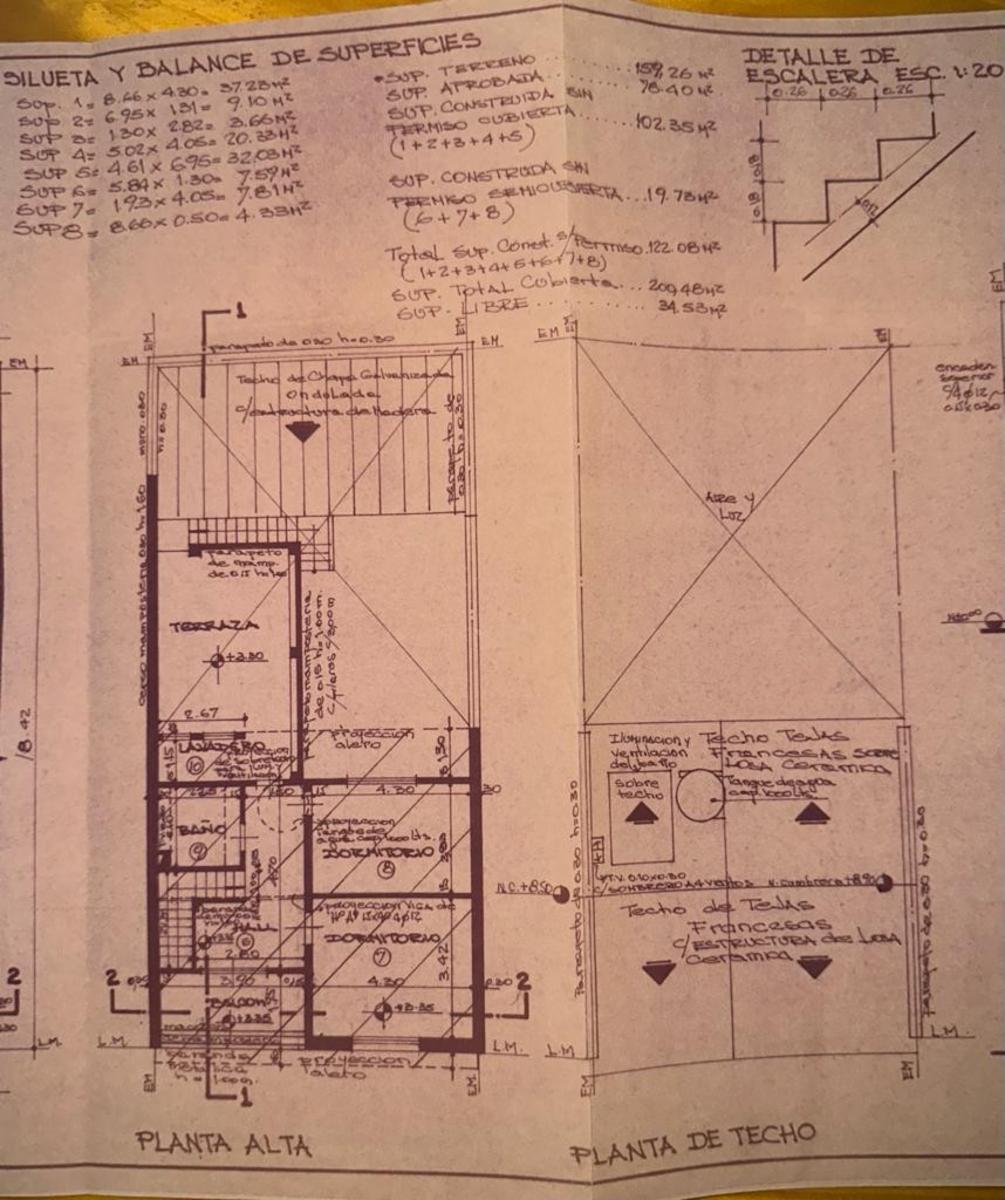 SILUETA Y BALANCE DE SUPERFICIES
SUP. 1= 8.66 x 4.30= 37.23 M²
SUP 2= 6.95 x 1.31= 9.10 M²
SUP 3= 1.30 x 2.82= 3.66 M²
SUP 4= 5.02 x 4.05= 20.33 M²
SUP 5= 4.61 x 6.95= 32.03 M²
SUP 6= 5.84 x 1.30= 7.59 M²
SUP 7= 1.93 x 4.05= 7.81 M²
SUP 8= 8.66 x 0.50= 4.33 M²
SUP. TERRENO 159.26 M²
SUP. APROBADA 78.40 M²
SUP. CONSTRUIDA SIN
PERMISO CUBIERTA 102.35 M²
(1+2+3+4+5)
SUP. CONSTRUIDA SIN
PERMISO SEMICUBIERTA... 19.73 M²
(6+7+8)
Total Sup. Const. s/Permiso. 122.08 M²
(1+2+3+4+5+6+7+8)
SUP. Total Cubierta... 200.48 M²
SUP. LIBRE 34.53 M²
DETALLE DE
ESCALERA ESC. 1:20
0.26 0.26 0.26
0.18
0.18
1
EM
EM
EM
EM
parapeto de 0.30 h=0.30
Techo de Chapa Galvanizada
Ondulada
c/estructura de Madera
muro 0.30
h=0.30
parapeto de
0.30 h=0.30
18.42
parapeto
de mamp.
de 0.15
TERRAZA
+3.30
2.67
LAVADERO
10
proyeccion
alero
1.30
4.30
BAÑO
9
proyeccion
tanque de
agua cap. 1000 lts.
DORMITORIO
8
proyeccion VIGA de
DORMITORIO
7
3.42
HALL
6
2.60
3.90
4.30
0.30
+3.35
BALCON
+3.35
2
2
2
L.M.
L.M.
L.M.
baranda
metalica
h=1.00m.
proyeccion
alero
EM
EM
1
PLANTA ALTA
EM
EM
EM
Aire y
Luz
Iluminacion y
ventilacion
del baño
Techo Tejas
Francesas SOBRE
LOSA CERAMICA
sobre
techo
Tanque de agua
cap. 1000 lts.
Parapeto de 0.30 h=0.30
C/SOMBRERO A 4 vientos
N. Cumbrera +8.50
N.C. +8.50
Techo de Tejas
Francesas
C/ESTRUCTURA de LOSA
Ceramica
Parapeto de 0.30 h=0.30
L.M.
EM
EM
PLANTA DE TECHO
encaden.
superior
EM